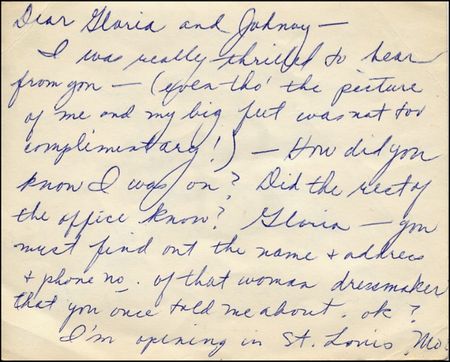 Dear Gloria and Johnny —
I was really thrilled to hear
from you — (even tho' the picture
of me and my big feet was not too
complimentary!) — How did you
know I was on? Did the rest of
the office know? Gloria — you
must find out the name & address
& phone no. of that woman dressmaker
that you once told me about. ok?
I'm opening in St. Louis, Mo.